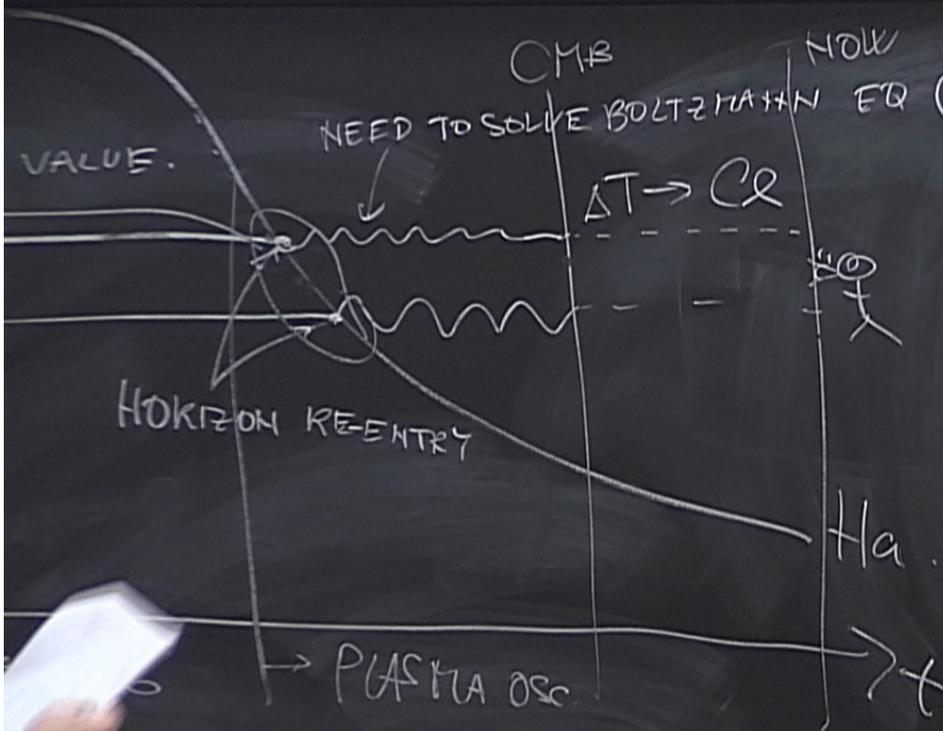 CMB
NOW
NEED TO SOLVE BOLTZMANN EQ (
VALUE.
ΔT → Cℓ
HORIZON RE-ENTRY
Ha
PLASMA OSC
t